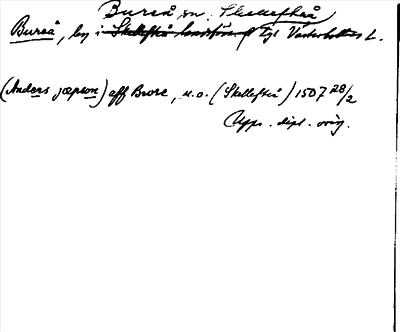 Bureå sn. Skellefteå
Bureå, by i Skellefteå landsförs. tgl Västerbottens L.
(Anders jœpson) aff Brore, u.o. (Skellefteå) 1507 28/2
Upps. dipl. orig.